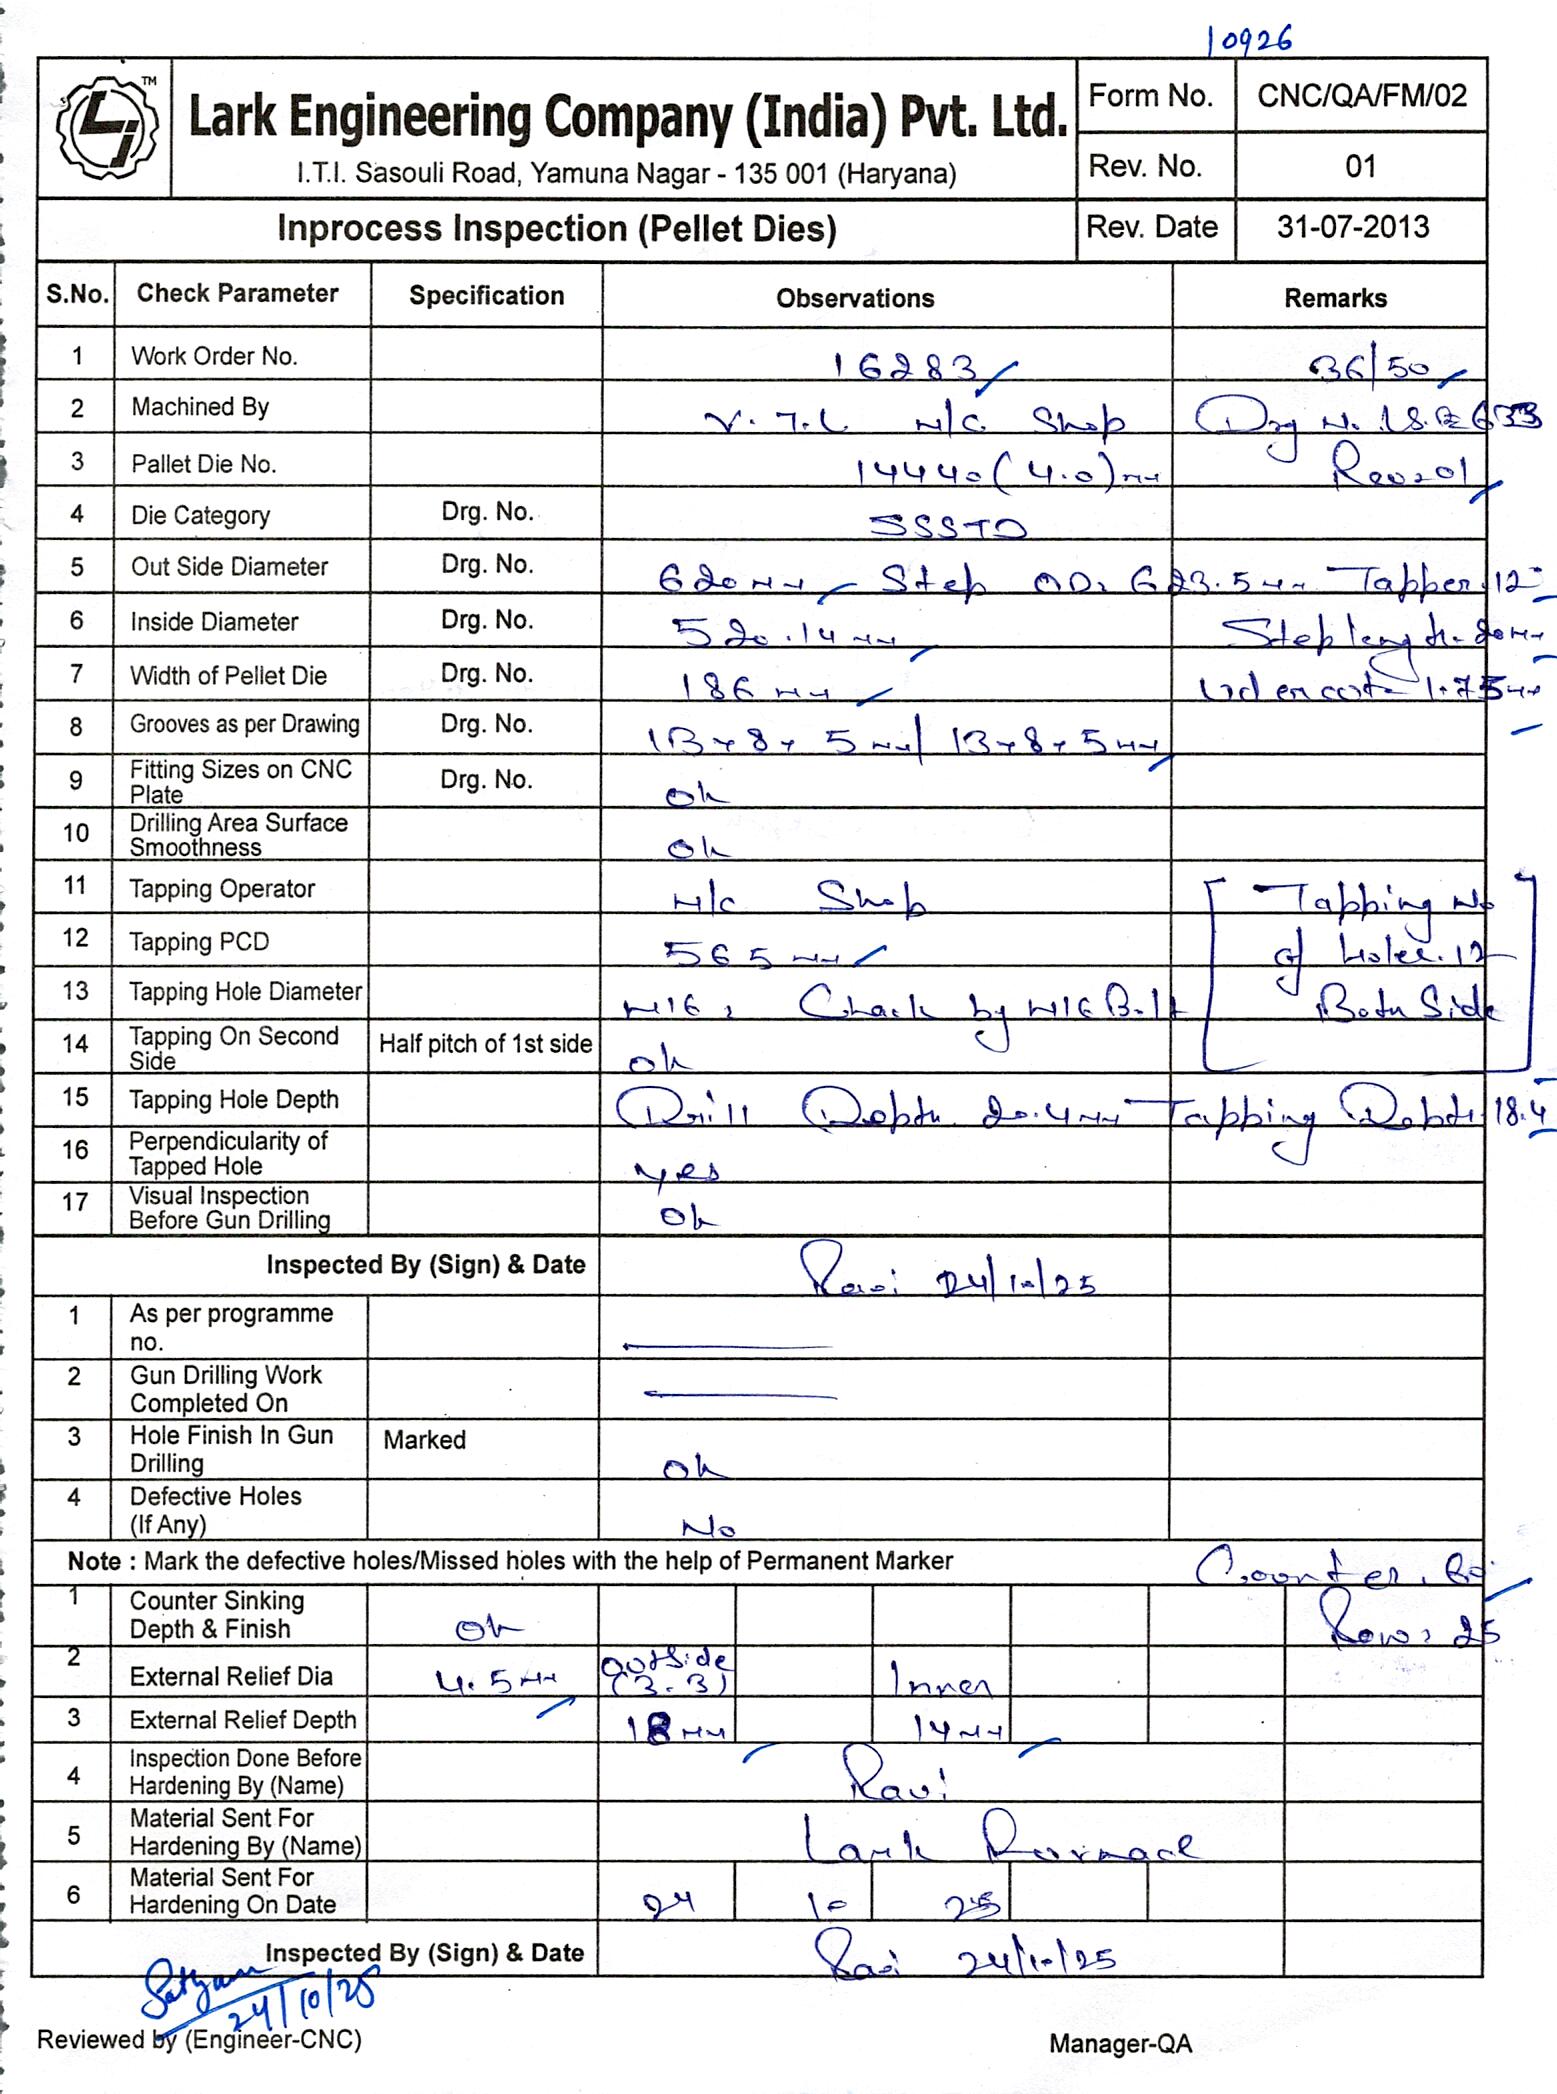 10926
TM
Lark Engineering Company (India) Pvt. Ltd.
I.T.I. Sasouli Road, Yamuna Nagar - 135 001 (Haryana)
Form No. CNC/QA/FM/02
Rev. No. 01
Inprocess Inspection (Pellet Dies) Rev. Date 31-07-2013
S.No. Check Parameter Specification Observations Remarks
1 Work Order No. 16283 36/50
2 Machined By V.T.L M/C Shop Drg N.
3 Pallet Die No. 14440 (4.0) mm Rev=01
4 Die Category Drg. No. SSSTD
5 Out Side Diameter Drg. No. 620mm Step OD: 623.5mm Tapper.12°
6 Inside Diameter Drg. No. 520.14mm Step length-20mm
7 Width of Pellet Die Drg. No. 186 mm Undercut- 1.75mm
8 Grooves as per Drawing Drg. No. 13x8x5mm/ 13x8x5mm
9 Fitting Sizes on CNC Plate Drg. No. Ok
10 Drilling Area Surface Smoothness Ok
11 Tapping Operator M/C Shop [ Tapping No
12 Tapping PCD 565 mm of Holes.12
13 Tapping Hole Diameter M16, Chack by M16 Bolt Both Side ]
14 Tapping On Second Side Half pitch of 1st side Ok
15 Tapping Hole Depth Drill Depth 20.4mm Tapping Depth.18.4
16 Perpendicularity of Tapped Hole yes
17 Visual Inspection Before Gun Drilling Ok
Inspected By (Sign) & Date Ravi 24/10/25
1 As per programme no.
2 Gun Drilling Work Completed On
3 Hole Finish In Gun Drilling Marked Ok
4 Defective Holes (If Any) No
Note : Mark the defective holes/Missed holes with the help of Permanent Marker Counter.
1 Counter Sinking Depth & Finish Ok Row: 25
2 External Relief Dia 4.5mm outside (3.3) Inner
3 External Relief Depth 18mm 14mm
4 Inspection Done Before Hardening By (Name) Ravi
5 Material Sent For Hardening By (Name) Lark
6 Material Sent For Hardening On Date 24 10 25
Inspected By (Sign) & Date Ravi 24/10/25
Satyam
24/10/25
Reviewed by (Engineer-CNC) Manager-QA